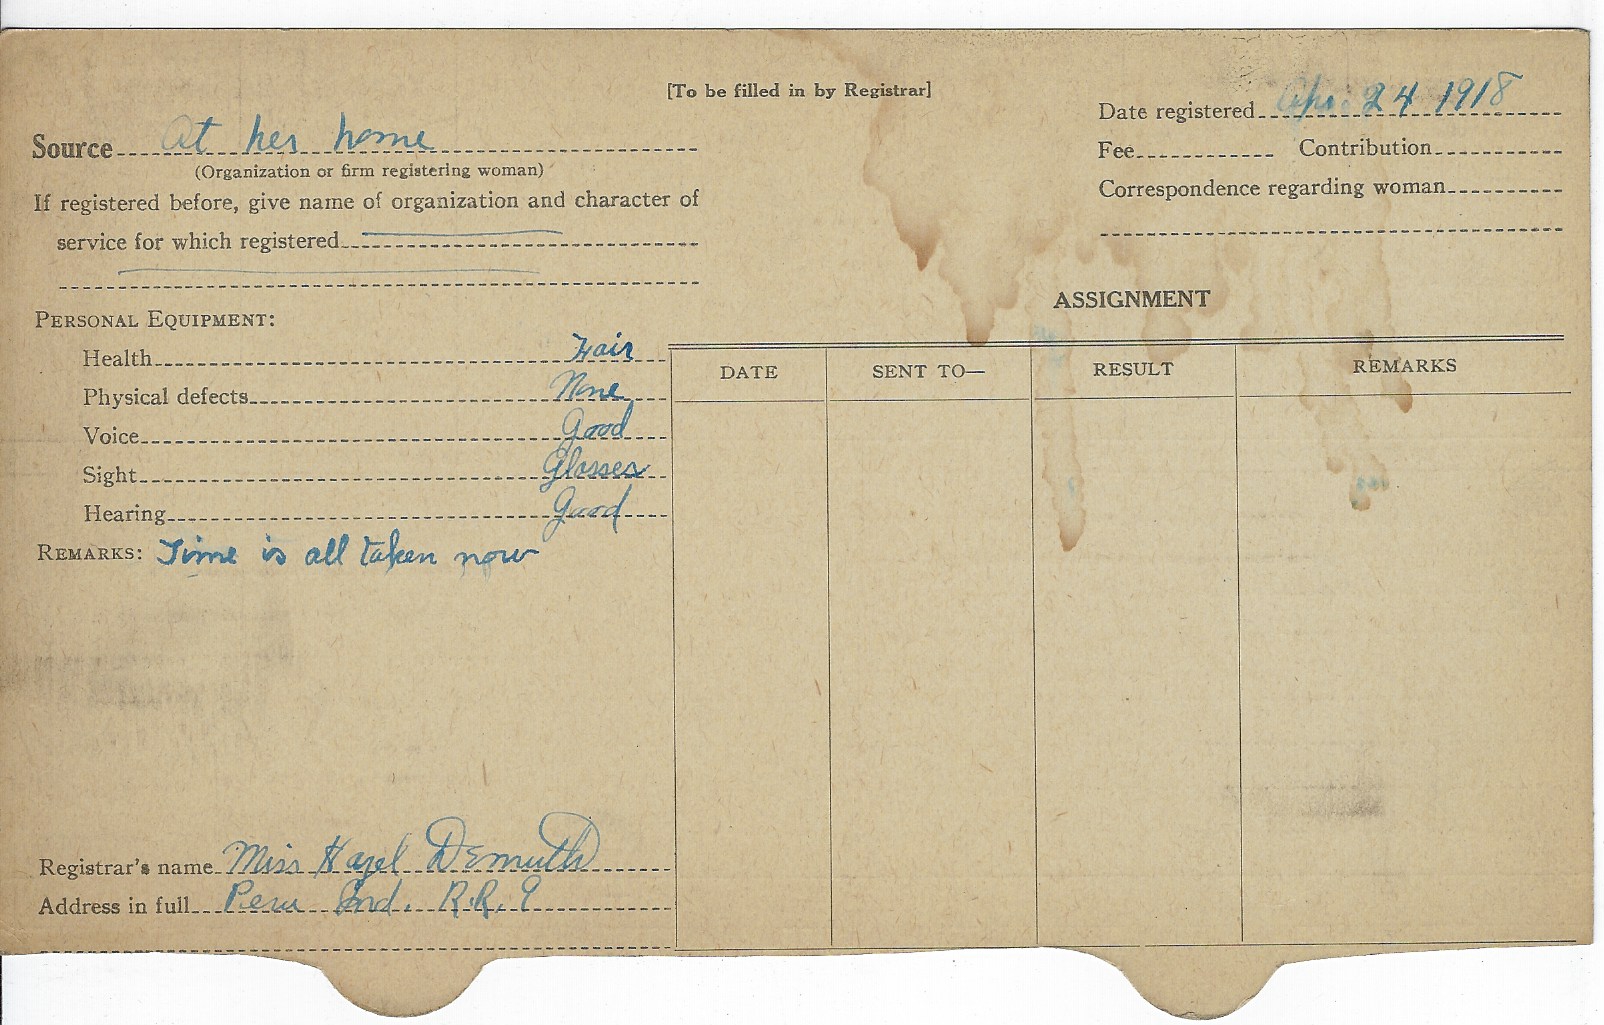 [To be filled in by Registrar]
Source At her home
(Organization or firm registering woman)
If registered before, give name of organization and character of
service for which registered
Date registered Apr. 24 1918
Fee Contribution
Correspondence regarding woman
PERSONAL EQUIPMENT:
Health Fair
Physical defects None
Voice Good
Sight Glasses
Hearing Good
REMARKS: Time is all taken now
Registrar's name Miss Hazel Demuth
Address in full Peru Ind. R.R. 9
ASSIGNMENT
DATE SENT TO— RESULT REMARKS